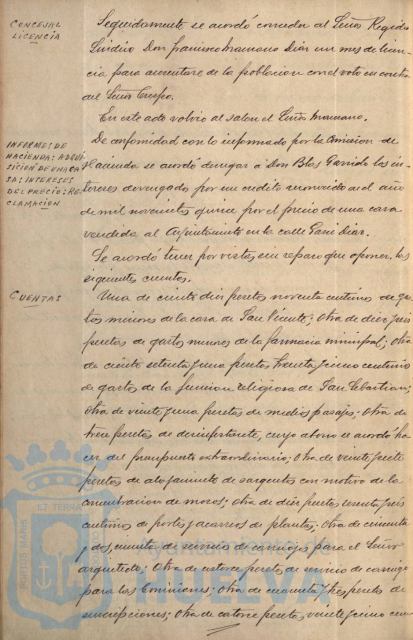 CONCEJAL
LICENCIA
Seguidamente se acordó conceder al Señor Regidor
Síndico Don Francisco Marmano Diaz un mes de licen-
cia para ausentarse de la población con el voto en contra
del Señor Crespo.
En este acto volvio al salon el Señor
INFORMES DE
HACIENDA: ADQUI
SICIÓN DE UNA CA
SA: INTERESES
DEL PRECIO: RE
CLAMACION
De conformidad con lo informado por la Comision de
Hacienda se acordó denegar a Don Blas Garrido los in-
tereses devengados por un credito reconocido el año
de mil novecientos quince por el precio de una casa
vendida al Ayuntamiento en la calle Garci Diaz.
Se acordó tener por vistas sin reparo que oponer, las
siguientes cuentas.
CUENTAS
Una de ciento diez pesetas noventa centimos de gas-
tos menores de la casa de San Vicente; otra de diez y seis
pesetas de gastos menores de la farmacia municipal; otra
de ciento setenta y una pesetas treinta y cinco centimos
de gastos de la funcion religiosa de San Sebastian;
otra de veinte y una pesetas de medios pasajes; otra de
trece pesetas de desinfectante, cuyo abono se acordó ha-
cer del presupuesto extraordinario; otra de veinte y siete
pesetas de alojamiento de sargentos con motivo de la
concentracion de mozos; otra de diez pesetas y seis
centimos de portes y acarreos de plantas; otra de cincuenta
y dos, cincuenta de servicio de carruajes para el Señor
arquitecto; otra de catorce pesetas de servicio de carruaje
para las Comisiones; otra de cuarenta y tres pesetas de
suscripciones; otra de catorce pesetas, veinte y cinco cen-
PORTUS MARIS
ET TERRAE
Ayuntamiento de
HUELVA